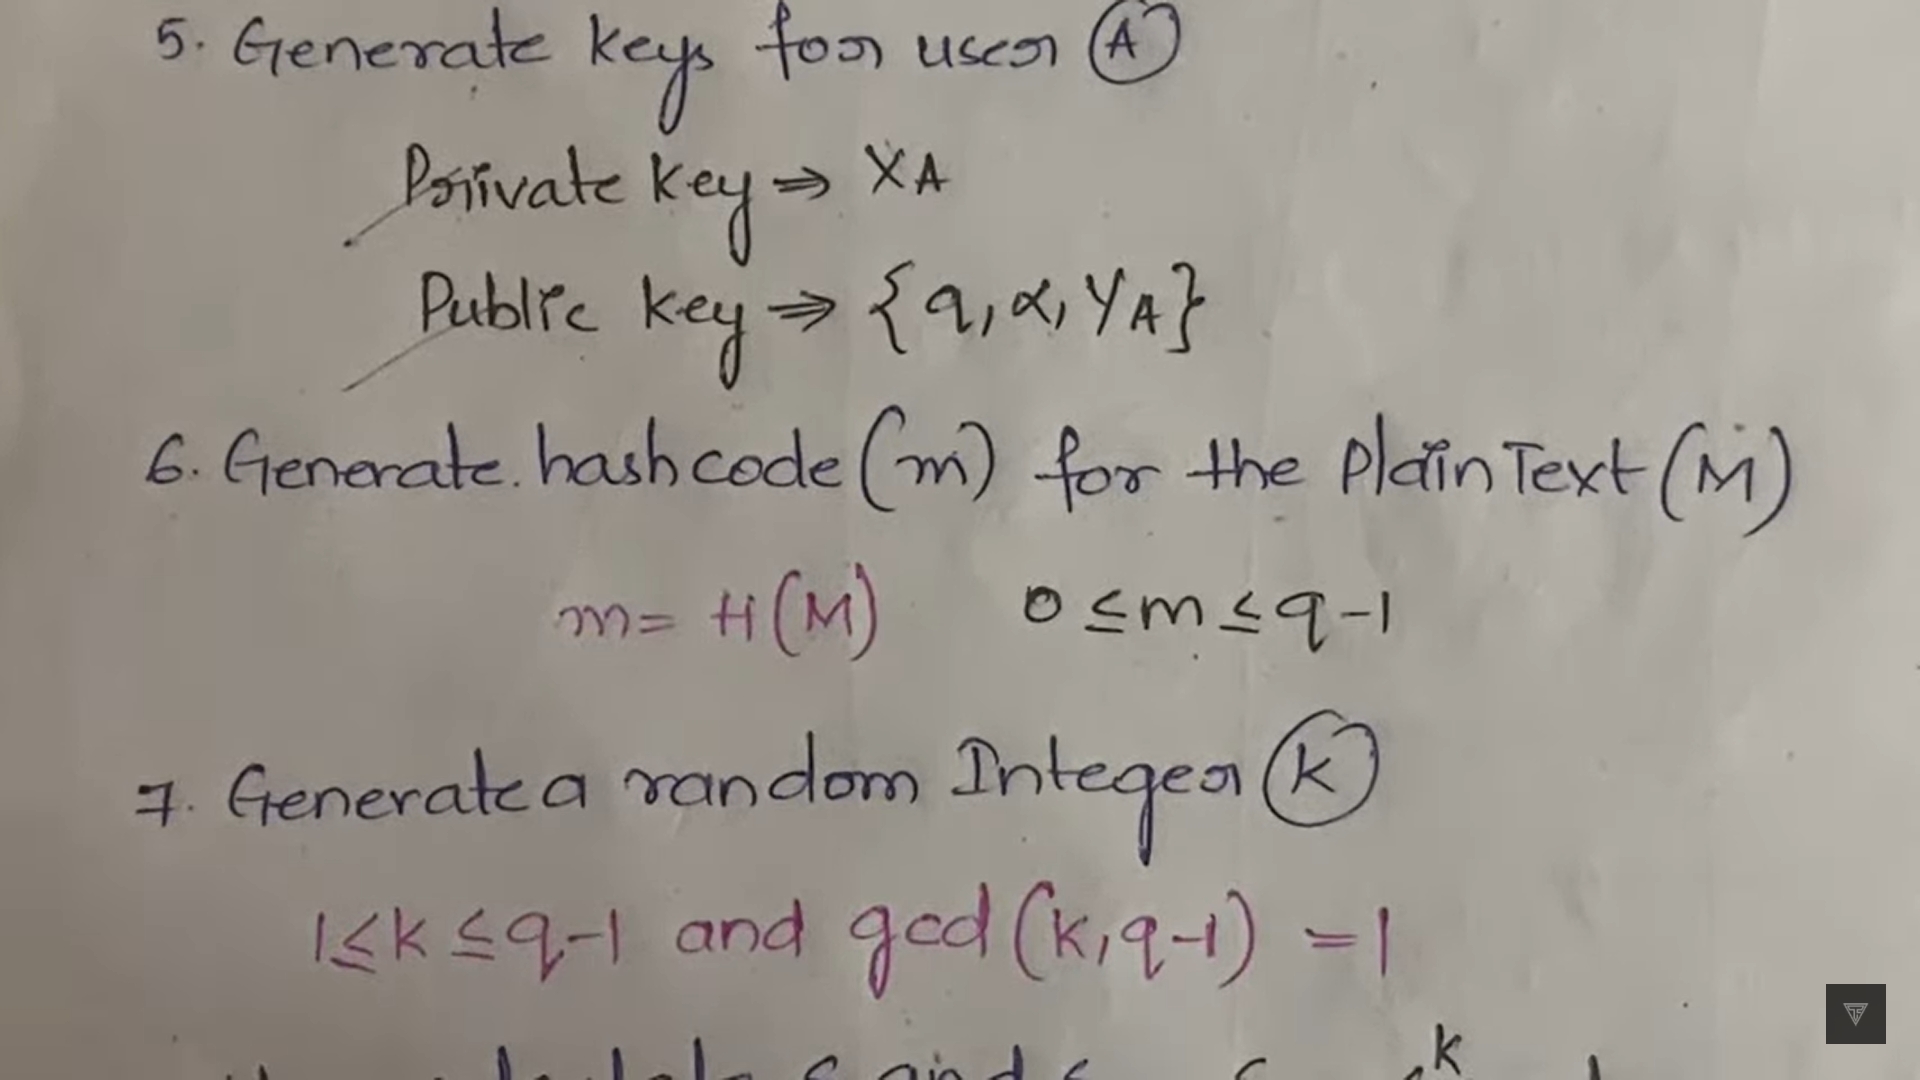 5. Generate keys for user A
Private key ⇒ XA
Public key ⇒ {q, α, YA}
6. Generate. hash code (m) for the Plain Text (M)
m = H(M)    0 ≤ m ≤ q-1
7. Generate a random Integer k
1 ≤ k ≤ q-1 and gcd (k, q-1) = 1
k